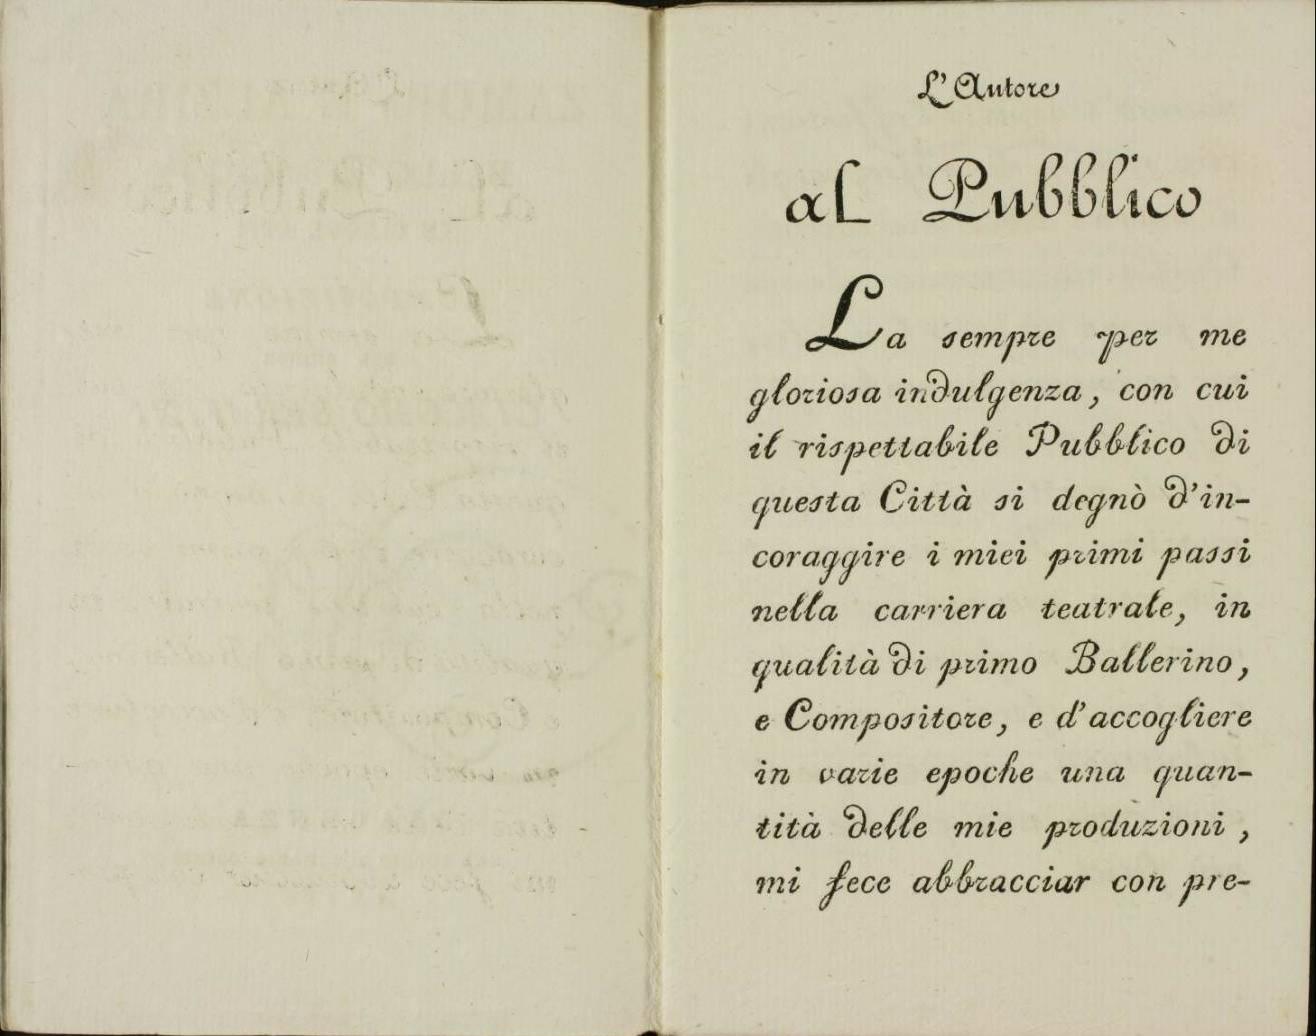 L'Autore
al Pubblico
La sempre per me
gloriosa indulgenza, con cui
il rispettabile Pubblico di
questa Città si degnò d'in-
coraggire i miei primi passi
nella carriera teatrale, in
qualità di primo Ballerino,
e Compositore, e d'accogliere
in varie epoche una quan-
tità delle mie produzioni,
mi fece abbracciar con pre-